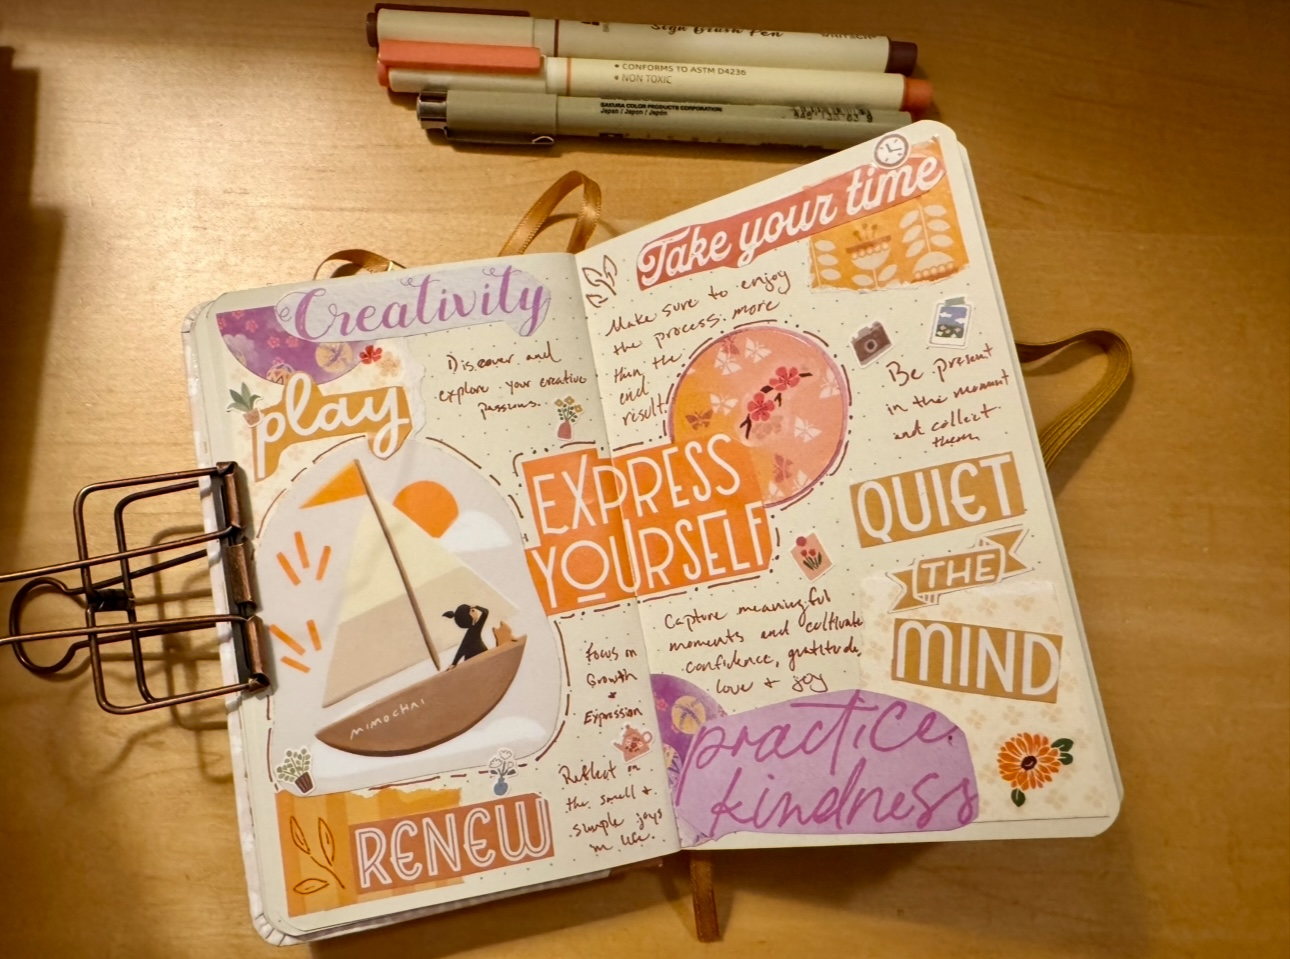 Sign Brush Pen
• CONFORMS TO ASTM D4236
• NON TOXIC
SAKURA COLOR PRODUCTS CORPORATION
Japan / Japon / Japón
Creativity
play
Discover and
explore your creative
passions.
mimochai
RENEW
EXPRESS
YOURSELF
Focus on
Growth
+
Expression
Reflect on
the small +
simple joys
in life.
Take your time
Make sure to enjoy
the process more
than the
end
result.
Be present
in the moment
and collect
them
QUIET
THE
MIND
Capture meaningful
moments and cultivate
confidence, gratitude,
love + joy
practice
kindness